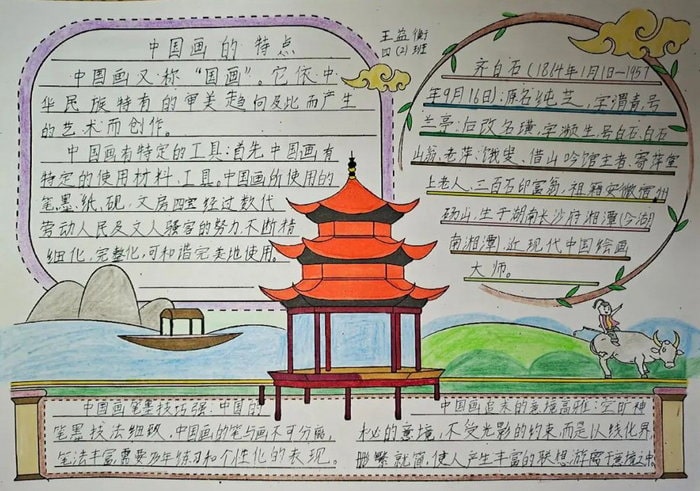 中国画的特点
中国画又称“国画”。它依中
华民族特有的审美趋向及比而产生
的艺术而创作。
中国画有特定的工具:首先中国画有
特定的使用材料、工具。中国画所使用的
笔、墨、纸、砚,文房四宝经过数代
劳动人民及文人骚客的努力,不断精
细化、完整化,可和谐完美地使用。
王益衡
四(2)班
齐白石(1864年1月1日—1957
年9月16日):原名纯芝,字渭青,号
兰亭;后改名璜,字濒生,号白石、白石
山翁、老萍、饿叟、借山吟馆主者、寄萍堂
上老人、三百石印富翁,祖籍安徽宿州
砀山,生于湖南长沙府湘潭(今湖
南湘潭),近现代中国绘画
大师。
中国画笔墨技巧强:中国的
笔墨技法细致,中国画的笔与画不可分离,
笔法丰富,需要多年练习和个性化的表现。
中国画追求的意境高雅:空旷神
秘的意境,不受光影的约束,而是以线化界
删繁就简,使人产生丰富的联想,游离于意境之中